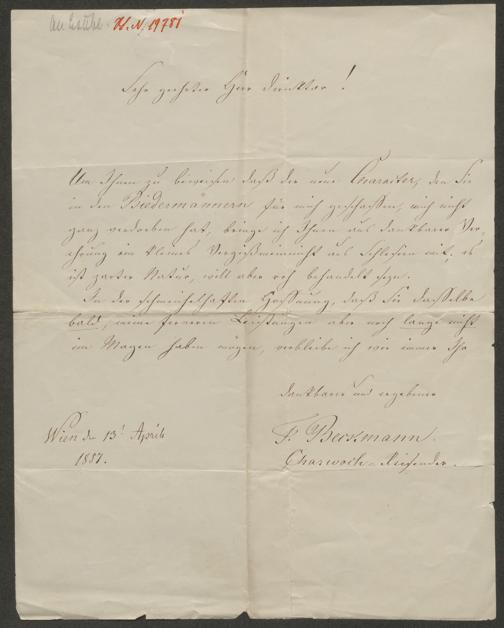 An Laube. H. I. N. 19781
Sehr geehrter Herr Direktor!
Um Ihnen zu beweisen daß der neue Charakter, den Sie
in den Biedermännern für mich geschaffen, mich nicht
ganz verdorben hat, bringe ich Ihnen aus dankbarer Ver-
ehrung ein kleines Vergißmeinnicht aus Schlesien mit, es
ist zarter Natur, will aber roh behandelt seyn.
In der schmeichelhaften Hoffnung, daß Sie dasselbe
bald, meine ferneren Leistungen aber noch lange nicht
im Magen haben mögen, verbleibe ich wie immer Ihr
dankbarer und ergebener
Wien den 13t April
F. Beckmann.
1857.
Reisender.